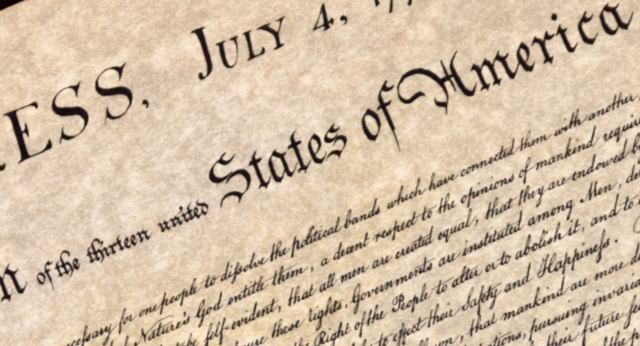 RESS, JULY 4,
n of the thirteen united States of America
cessary for one people to dissolve the political bands which have connected them with another
Nature's God entitle them, a deant respect to the opinions of mankind requir
to be self-evident, that all men are created equal, that they are endowed b
these rights, Governments are instituted among Men, de
Right of the People to alter or to abolish it, and to
to effect their Safety and Happiness.
that mankind are more d
pursuing invaria
their future